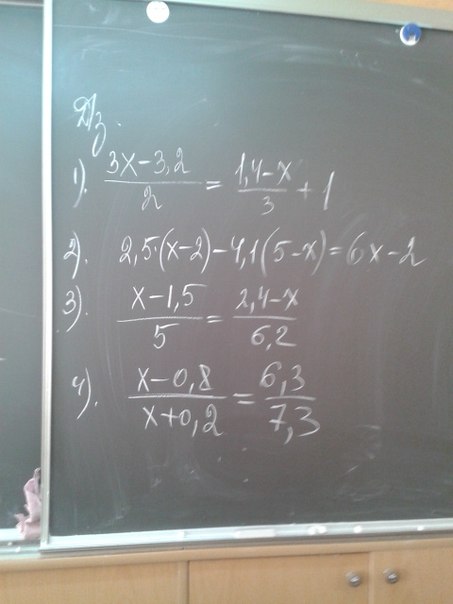 Д/з.
1). (3x-3,2)/2 = (1,4-x)/3 + 1
2). 2,5·(x-2)-4,1(5-x)=6x-2
3). (x-1,5)/5 = (2,4-x)/6,2
4). (x-0,8)/(x+0,2) = 6,3/7,3